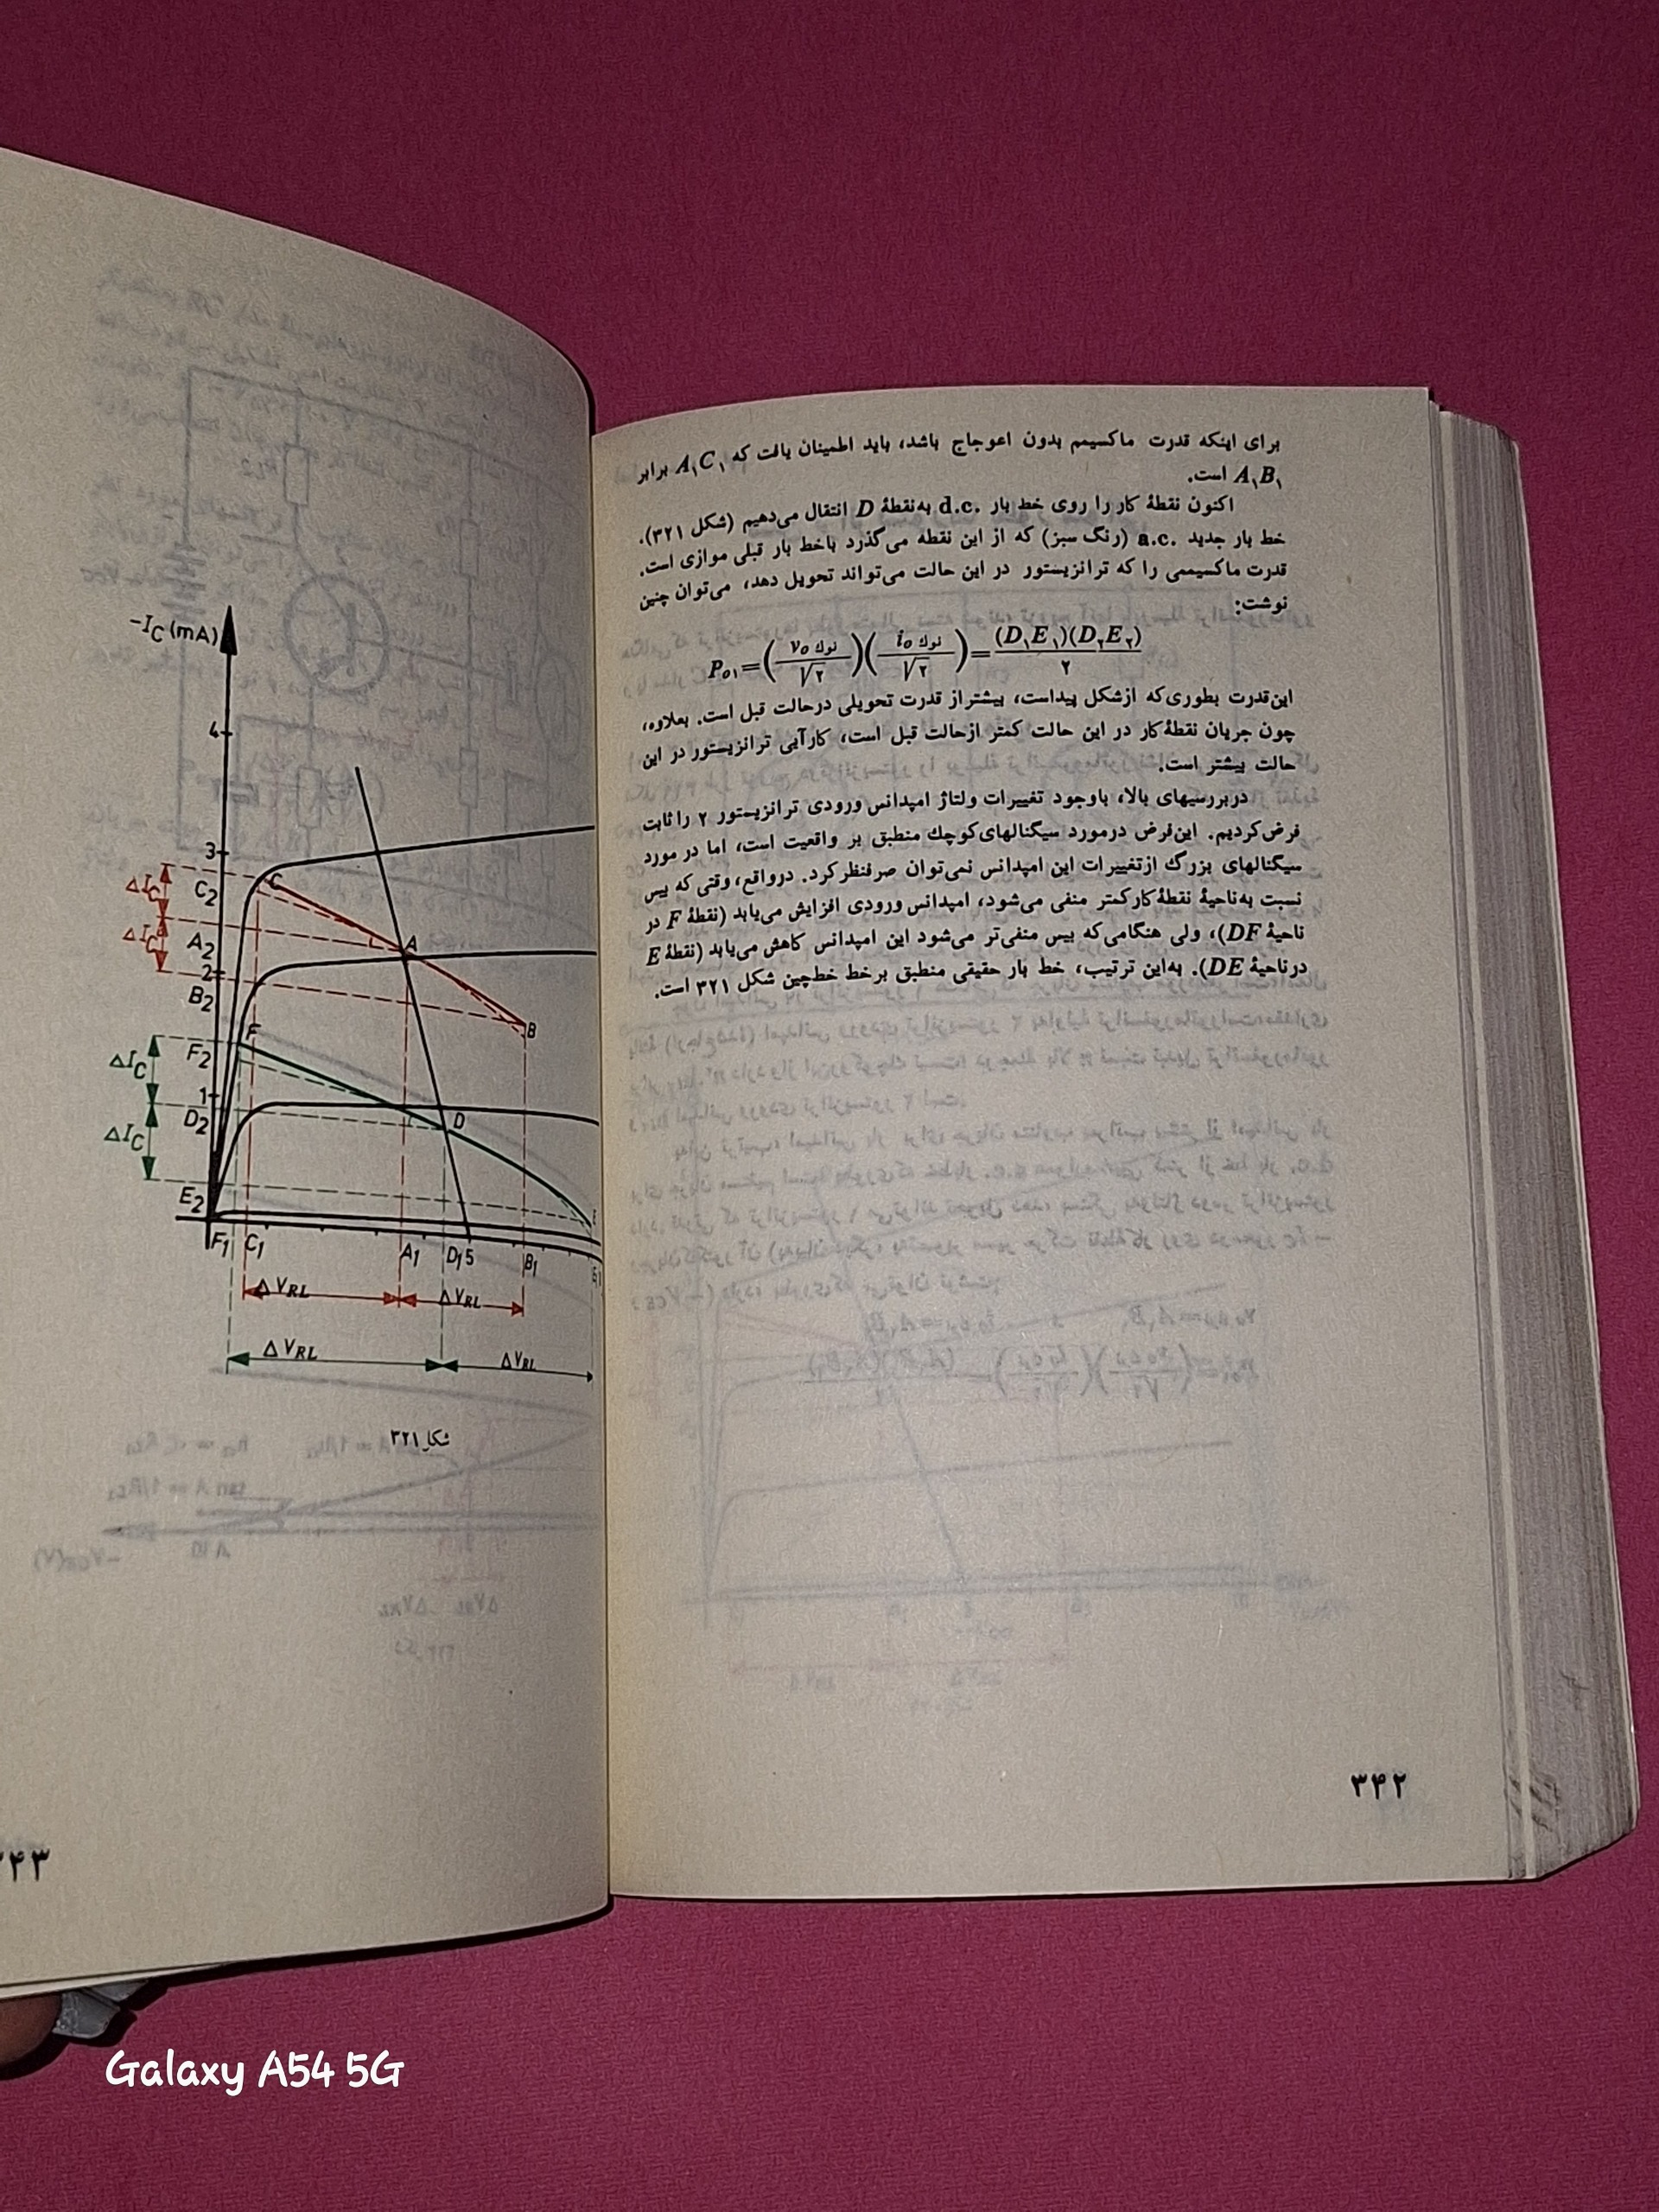 برای اینکه قدرت ماکسیمم بدون اعوجاج باشد، باید اطمینان یافت که A₁C₁ برابر
A₁B₁ است.
اکنون نقطهٔ کار را روی خط بار d.c. به‌نقطهٔ D انتقال می‌دهیم (شکل ۳۲۱).
خط بار جدید a.c. (رنگ سبز) که از این نقطه می‌گذرد باخط بار قبلی موازی است.
قدرت ماکسیممی را که ترانزیستور در این حالت می‌تواند تحویل دهد، می‌توان چنین
نوشت:
P₀₁=(v₀ نوك/√۲)(i₀ نوك/√۲)=(D₁E₁)(D₂E₂)/۲
این‌قدرت بطوری‌که ازشکل پیداست، بیشتر از قدرت تحویلی درحالت قبل است. بعلاوه،
چون جریان نقطهٔ کار در این حالت کمتر ازحالت قبل است، کارآیی ترانزیستور در این
حالت بیشتر است.
دربررسیهای بالا، باوجود تغییرات ولتاژ امپدانس ورودی ترانزیستور ۲ را ثابت
فرض‌کردیم. این‌فرض درمورد سیگنالهای‌کوچك منطبق بر واقعیت است، اما در مورد
سیگنالهای بزرگ ازتغییرات این امپدانس نمی‌توان صرفنظر کرد. درواقع، وقتی که بیس
نسبت به‌ناحیهٔ نقطهٔ کار کمتر منفی می‌شود، امپدانس ورودی افزایش می‌یابد (نقطهٔ F در
ناحیهٔ DF)، ولی هنگامی‌که بیس منفی‌تر می‌شود این امپدانس کاهش می‌یابد (نقطهٔ E
درناحیهٔ DE). به‌این ترتیب، خط بار حقیقی منطبق برخط خط‌چین شکل ۳۲۱ است.
۳۴۲
-I_C (mA)
4
3
C₂
C
ΔI_C
ΔI_C
A₂
A
2
B₂
B
F
F₂
ΔI_C
1
D₂
D
ΔI_C
E₂
F₁ C₁ A₁ D₁ 5 B₁ E₁
ΔV_RL ΔV_RL
ΔV_RL ΔV_RL
شکل ۳۲۱
۳۴۳
Galaxy A54 5G